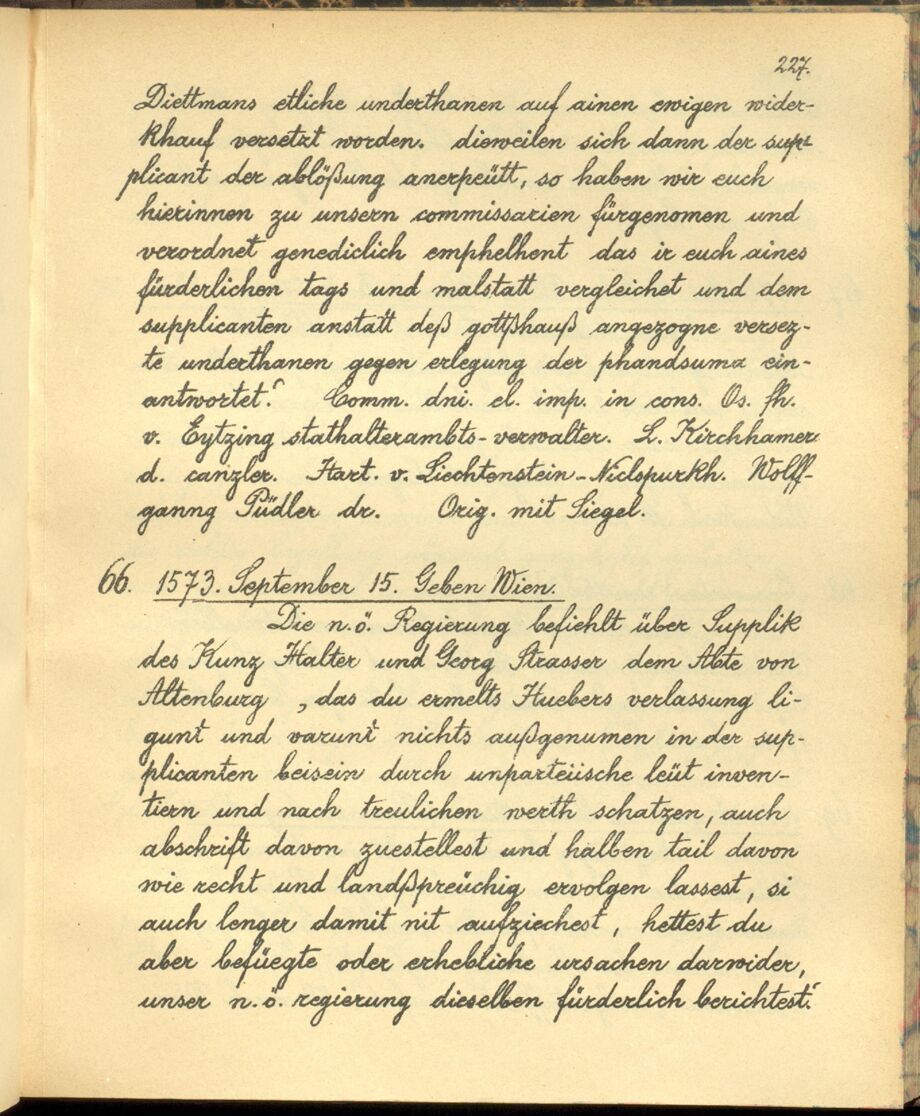 227.
Diettmans etliche underthanen auf ainen ewigen wider-
khauf versetzt worden. dieweilen sich dann der sup-
plicant der ablößung anerpeütt, so haben wir euch
hierinnen zu unsern commissarien fürgenomen und
verordnet genediclich emphelhent das ir euch aines
fürderlichen tags und malstatt vergleichet und dem
supplicanten anstatt deß gottßhauß angezogne versez-
te underthanen gegen erlegung der phandsuma ein-
antwortet." Comm. dni. el. imp. in cons. Os. fh.
v. Eytzing stathalterambts-verwalter. L. Kirchhamer
d. canzler. Hart. v. Liechtenstein-Niclspurkh. Wolff-
ganng Püdler dr. Orig. mit Siegel.
66. 1573. September 15. Geben Wien.
Die n.ö. Regierung befiehlt über Supplik
des Kunz Halter und Georg Strasser dem Abte von
Altenburg „das du ermelts Huebers verlassung li-
gunt und varunt nichts außgenumen in der sup-
plicanten beisein durch unparteiische leüt inven-
tiern und nach treulichen werth schatzen, auch
abschrift davon zuestellest und halben tail davon
wie recht und landßpreüchig ervolgen lassest, si
auch lenger damit nit aufziechest, hettest du
aber befüegte oder erhebliche ursachen darwider,
unser n.ö. regierung dieselben fürderlich berichtest."